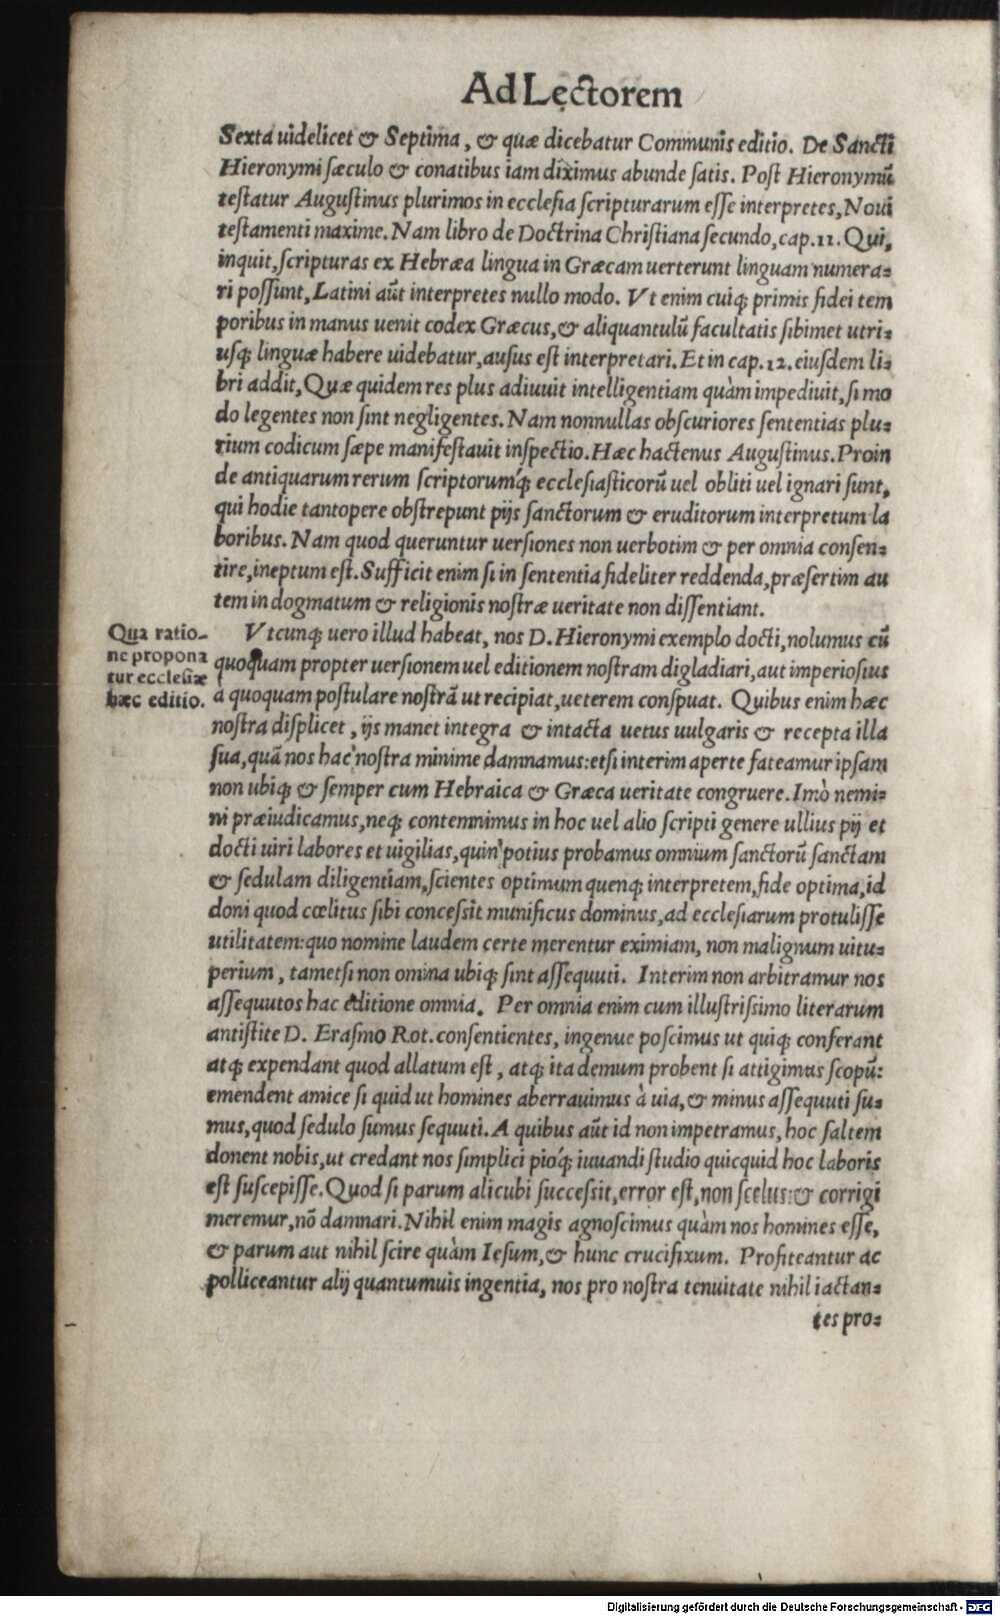 Ad Lectorem
Sexta uidelicet & Septima, & quæ dicebatur Communis editio. De Sancti
Hieronymi sæculo & conatibus iam diximus abunde satis. Post Hieronymũ
testatur Augustinus plurimos in ecclesia scripturarum esse interpretes, Noui
testamenti maxime. Nam libro de Doctrina Christiana secundo, cap. 11. Qui,
inquit, scripturas ex Hebræa lingua in Græcam uerterunt linguam numera=
ri possunt, Latini aũt interpretes nullo modo. Vt enim cuiq; primis fidei tem
poribus in manus uenit codex Græcus, & aliquantulũ facultatis sibimet utri=
usq; linguæ habere uidebatur, ausus est interpretari. Et in cap. 12. eiusdem li=
bri addit, Quæ quidem res plus adiuuit intelligentiam quàm impediuit, si mo
do legentes non sint negligentes. Nam nonnullas obscuriores sententias plu=
rium codicum sæpe manifestauit inspectio. Hæc hactenus Augustinus. Proin
de antiquarum rerum scriptorumq́; ecclesiasticorũ uel obliti uel ignari sunt,
qui hodie tantopere obstrepunt pijs sanctorum & eruditorum interpretum la
boribus. Nam quod queruntur uersiones non uerbotim & per omnia consen=
tire, ineptum est. Sufficit enim si in sententia fideliter reddenda, præsertim au
tem in dogmatum & religionis nostræ ueritate non dissentiant.
Qua ratio-
ne propona
tur ecclesiæ
hæc editio.
Vtcunq; uero illud habeat, nos D. Hieronymi exemplo docti, nolumus cũ
quoquam propter uersionem uel editionem nostram digladiari, aut imperiosius
a quoquam postulare nostrã ut recipiat, ueterem conspuat. Quibus enim hæc
nostra displicet, ijs manet integra & intacta uetus uulgaris & recepta illa
sua, quã nos hac nostra minime damnamus: etsi interim aperte fateamur ipsam
non ubiq; & semper cum Hebraica & Græca ueritate congruere. Imò nemi=
ni præiudicamus, neq; contemnimus in hoc uel alio scripti genere ullius pij et
docti uiri labores et uigilias, quin potius probamus omnium sanctorũ sanctam
& sedulam diligentiam, scientes optimum quenq; interpretem, fide optima, id
doni quod cœlitus sibi concessit munificus dominus, ad ecclesiarum protulisse
utilitatem: quo nomine laudem certe merentur eximiam, non malignum uitu=
perium, tametsi non omina ubiq; sint assequuti. Interim non arbitramur nos
assequutos hac editione omnia. Per omnia enim cum illustrissimo literarum
antistite D. Erasmo Rot. consentientes, ingenue poscimus ut quiq; conferant
atq; expendant quod allatum est, atq; ita demum probent si attigimus scopũ:
emendent amice si quid ut homines aberrauimus à uia, & minus assequuti su=
mus, quod sedulo sumus sequuti. A quibus aũt id non impetramus, hoc saltem
donent nobis, ut credant nos simplici pioq́; iuuandi studio quicquid hoc laboris
est suscepisse. Quod si parum alicubi successit, error est, non scelus: & corrigi
meremur, nõ damnari. Nihil enim magis agnoscimus quàm nos homines esse,
& parum aut nihil scire quàm Iesum, & hunc crucifixum. Profiteantur ac
polliceantur alij quantumuis ingentia, nos pro nostra tenuitate nihil iactan=
tes pro=
Digitalisierung gefördert durch die Deutsche Forschungsgemeinschaft - DFG